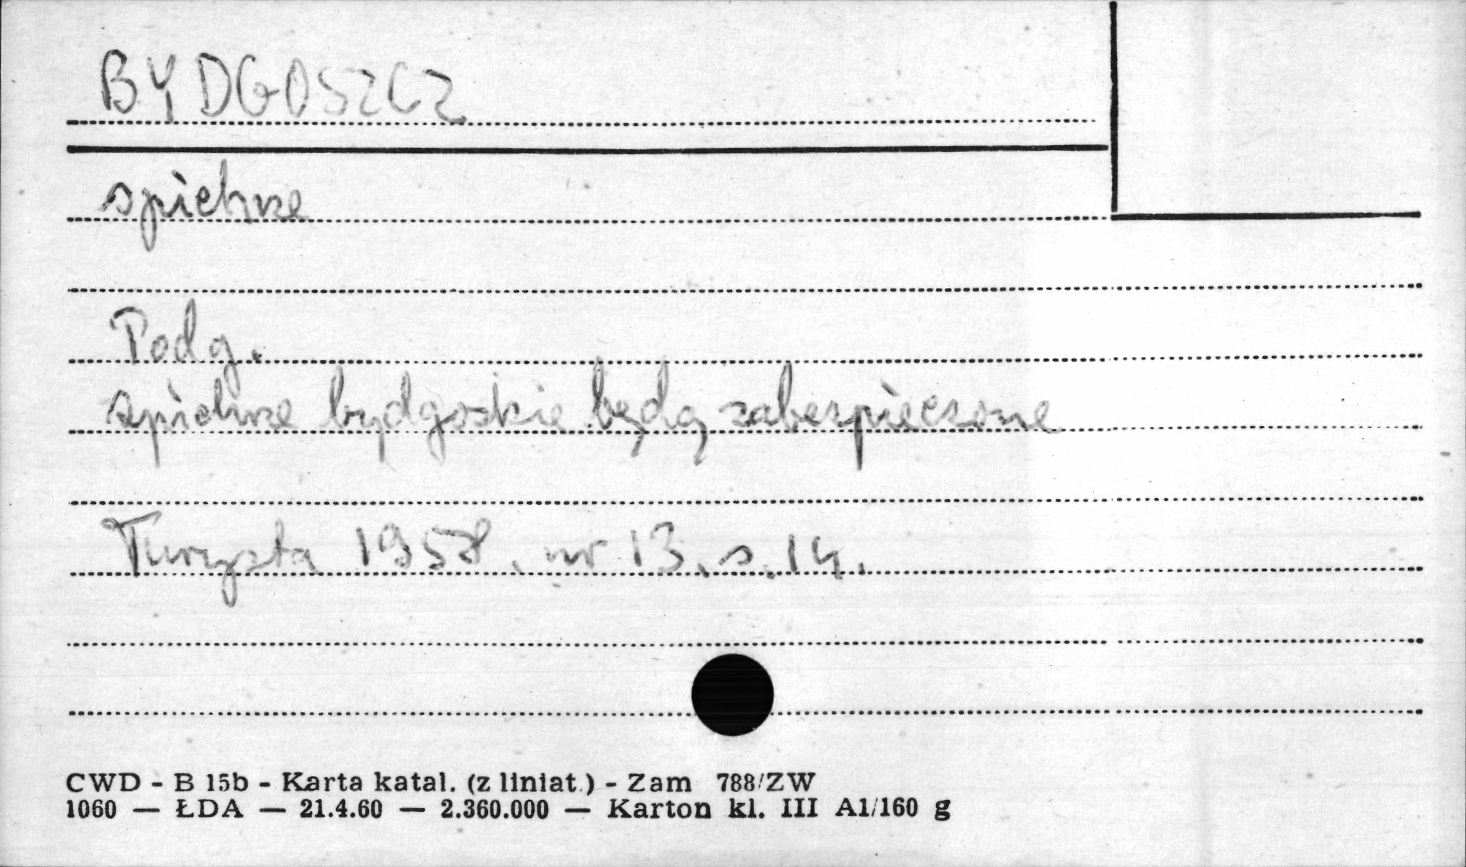 BYDGOSZCZ
spichrze
Podg.
spichrze bydgoskie będą zabezpieczone
Turysta 1958. nr 13. s. 14.
CWD - B 15b - Karta katal. (z liniat.) - Zam 788/ZW
1060 — ŁDA — 21.4.60 — 2.360.000 — Karton kl. III A1/160 g